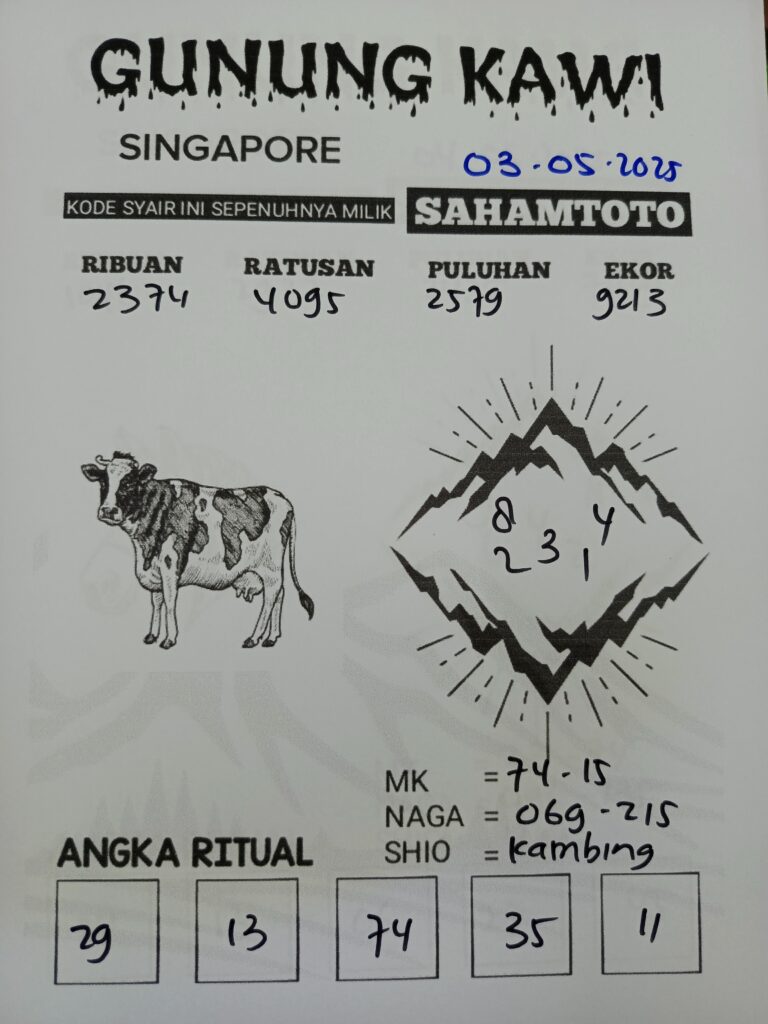 GUNUNG KAWI
SINGAPORE
03-05-2025
KODE SYAIR INI SEPENUHNYA MILIK SAHAMTOTO
RIBUAN RATUSAN PULUHAN EKOR
2374 4095 2579 9213
8 4
2 3 1
MK = 74-15
NAGA = 069-215
SHIO = Kambing
ANGKA RITUAL
29 13 74 35 11